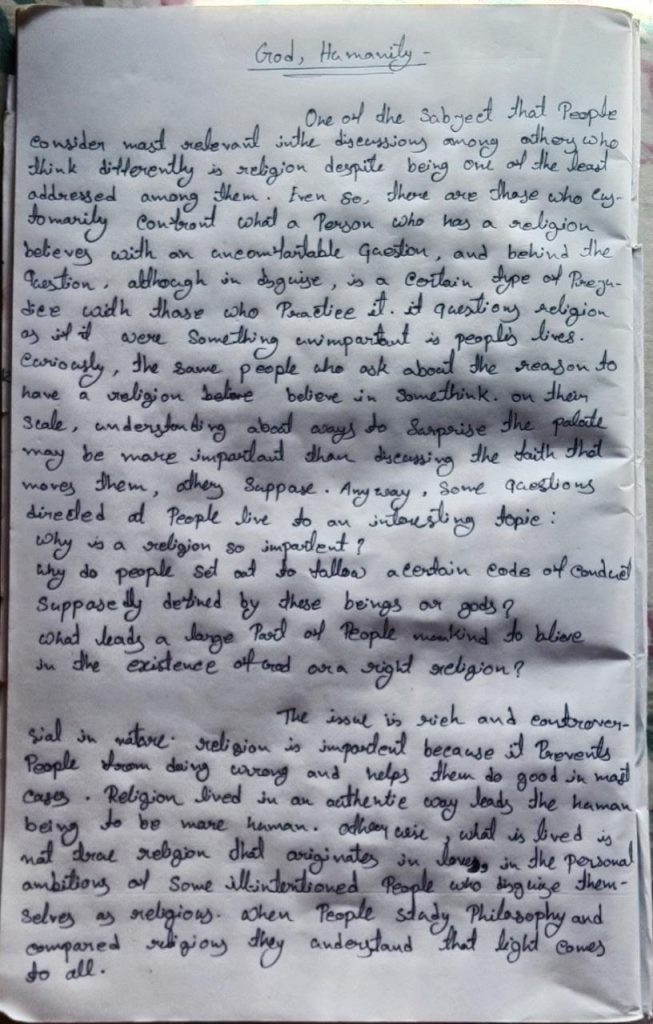 God, Humanity -
One of the Subject that People
consider most relevant inthe discussions among others who
think differently is religion despite being one of the least
addressed among them. Even so, there are those who cus-
tomarily Confront what a Person who has a religion
believes with an uncomfortable Question, and behind the
Question, although in disguise, is a Certain type of Preju-
dice with those who Practice it. it questions religion
as if it were Something unimportant is people's lives.
Curiously, the same people who ask about the reason to
have a religion before believe in Somethink. on their
Scale, understanding about ways to Surprise the palate
may be more important than discussing the faith that
moves them, others Suppose. Anyway, Some questions
directed at People live to an interesting topic :
Why is a religion so important ?
Why do people set out to follow a certain code of conduct
Supposedly defined by these beings or gods ?
What leads a large Part of People mankind to blieve
in the existence of God or a right religion ?
The issue is rich and controver-
sial in nature. religion is important because it Prevents
People from doing wrong and helps them do good in most
Cases. Religion lived in an authentic way leads the human
being to be more human. otherwise, what is lived is
not true religion that originates in love, in the personal
ambitions of Some ill-intentioned People who disguise them-
selves as religious. When People study Philosophy and
compared religious they understand that light comes
to all.